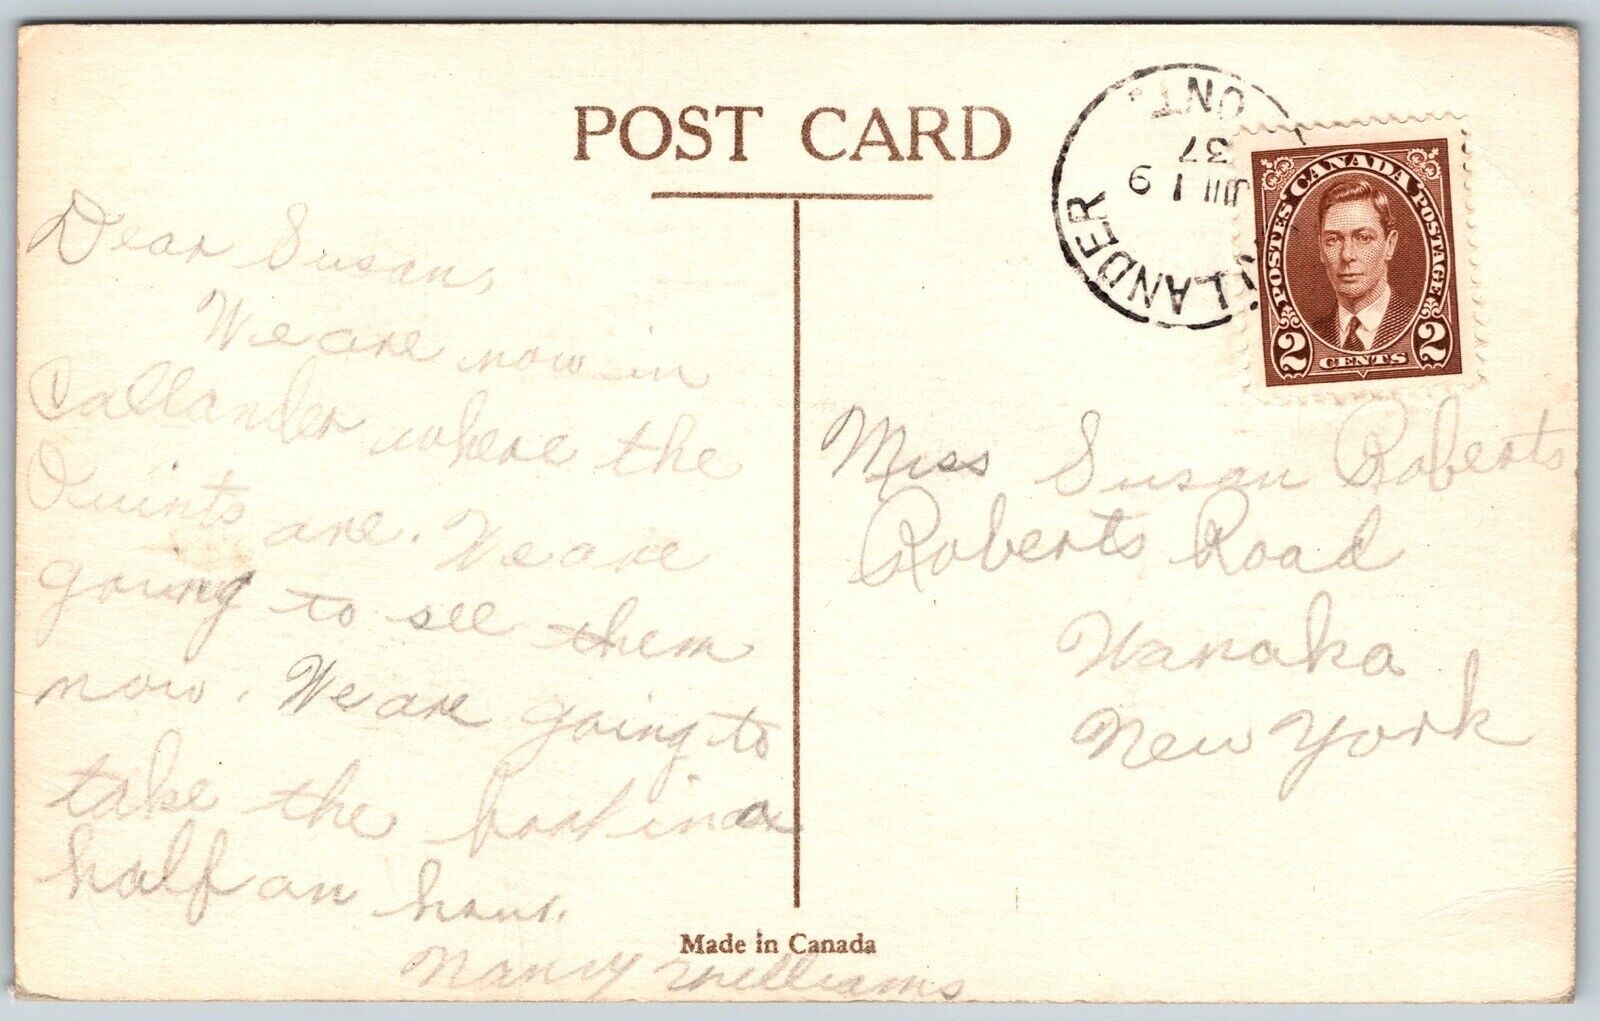 POST CARD
ONT.
37
9
LANDER
CANADA
POSTES POSTAGE
2 CENTS 2
Dear Susan,
We are now in
Callander where the
Quints are. We are
going to see them
now. We are going to
take the boat in a
half an hour.
Nancy Williams
Miss Susan Roberts
Roberts Road
Wanaka
New York
Made in Canada